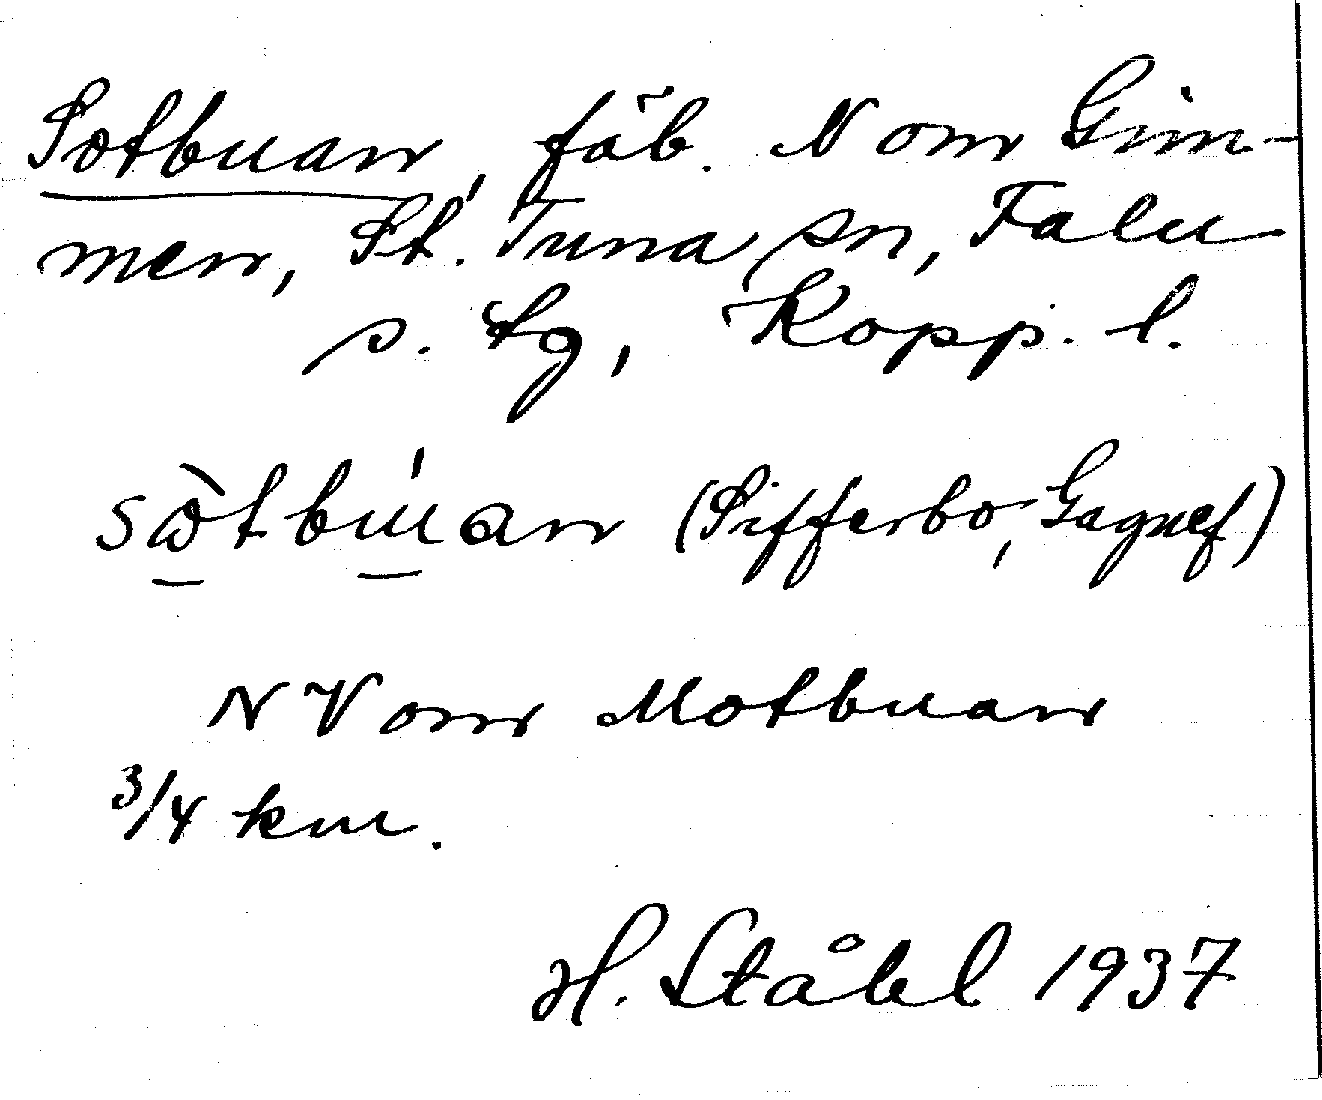 Sotbuan, fäb. N om Gim-
men, St. Tuna sn, Falu
s. tg, Kopp. l.
sὼtbu̍an (Sifferbo, Gagnef)
NV om Motbuan
3/4 km.
H. Ståhl 1937